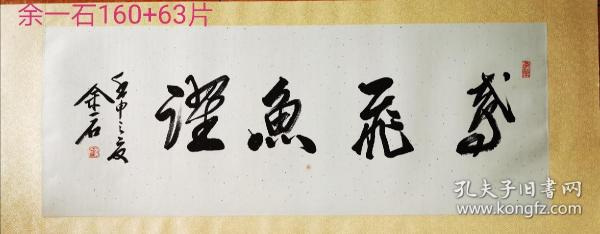 余一石160+63片
鳶飛魚躍
壬申之夏
余一石
孔夫子旧书网
www.kongfz.com